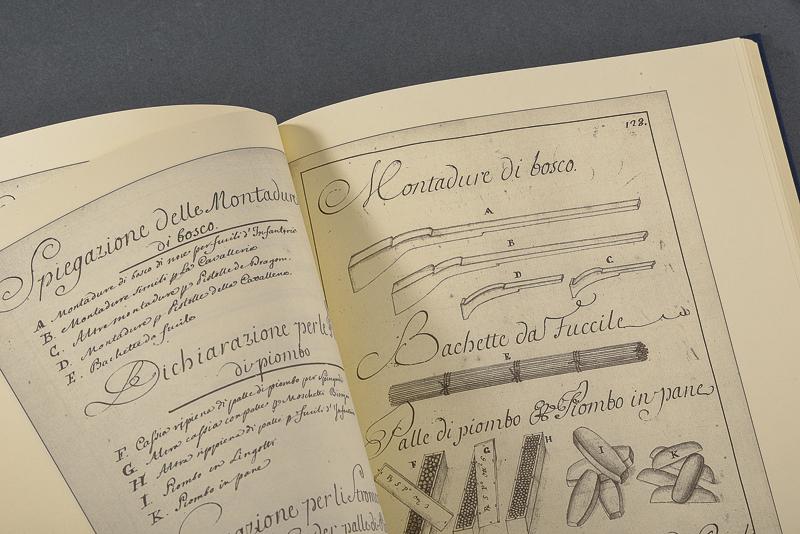 Spiegazione delle Montadure
di bosco.
A. Montadure di bosco di noce per fucili d'Infanteria
B. Montadure simili p la Cavalleria
C. Altre montadure p Pistolle de Dragoni.
D. Montadure p Pistolle della Cavalleria.
E. Bachette da fucile
Dichiarazione per le
di piombo
F. Cassia ripiena di palle di piombo per
G. Altra cassia con palle p Moschetti
H. Altra rippiena di palle p fucili d'
I. Piombo in Lingotti
K. Piombo in pane
azione per li
der palle di
128.
Montadure di bosco.
A
B
D
C
Bachette da Fuccile
E
Palle di piombo & Piombo in pane
F
G
H
I
K